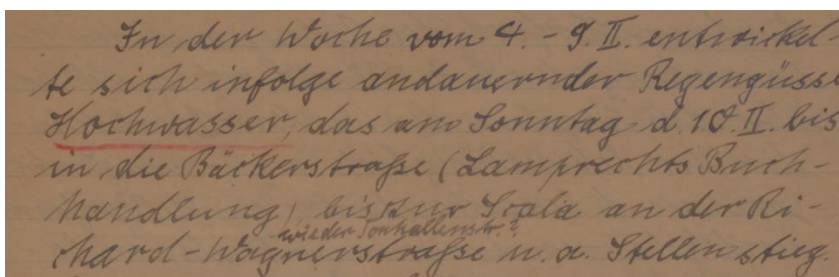 In der Woche vom 4. - 9. II. entwickel-
te sich infolge andauernder Regengüss
Hochwasser, das am Sonntag d. 10. II. bis
in die Bäckerstraße (Lamprechts Buch-
handlung), bis zur Scala an der Ri-
wieder Tonhallenstr.?
chard-Wagnerstraße u. a. Stellen stieg.